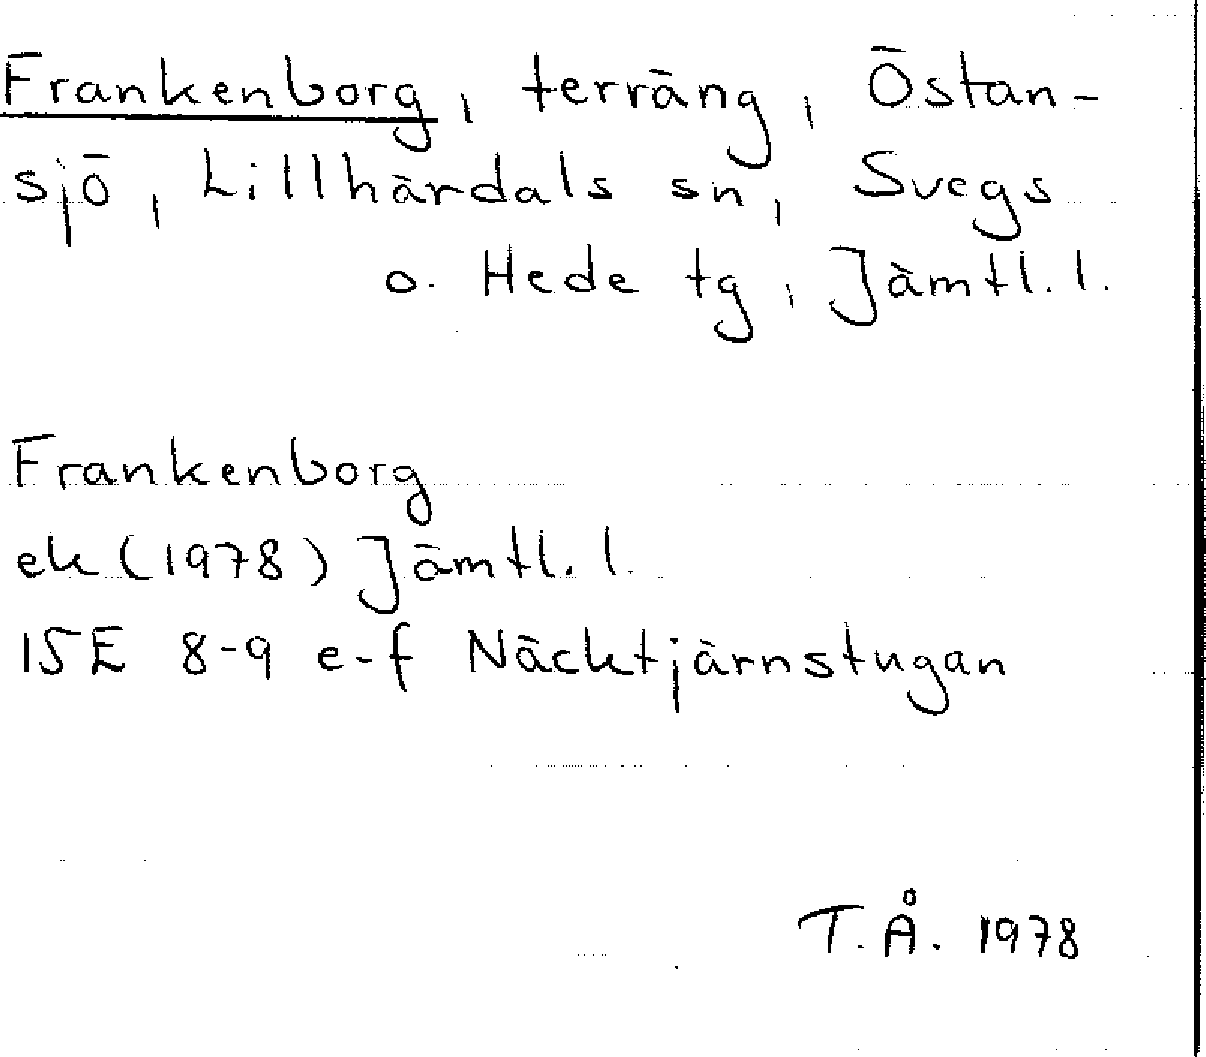 Frankenborg, terräng, Östan-
sjö, Lillhärdals sn, Svegs
o. Hede tg, Jämtl. l.
Frankenborg
ek (1978) Jämtl. l.
15E 8-9 e-f Näcktjärnstugan
T.Å. 1978